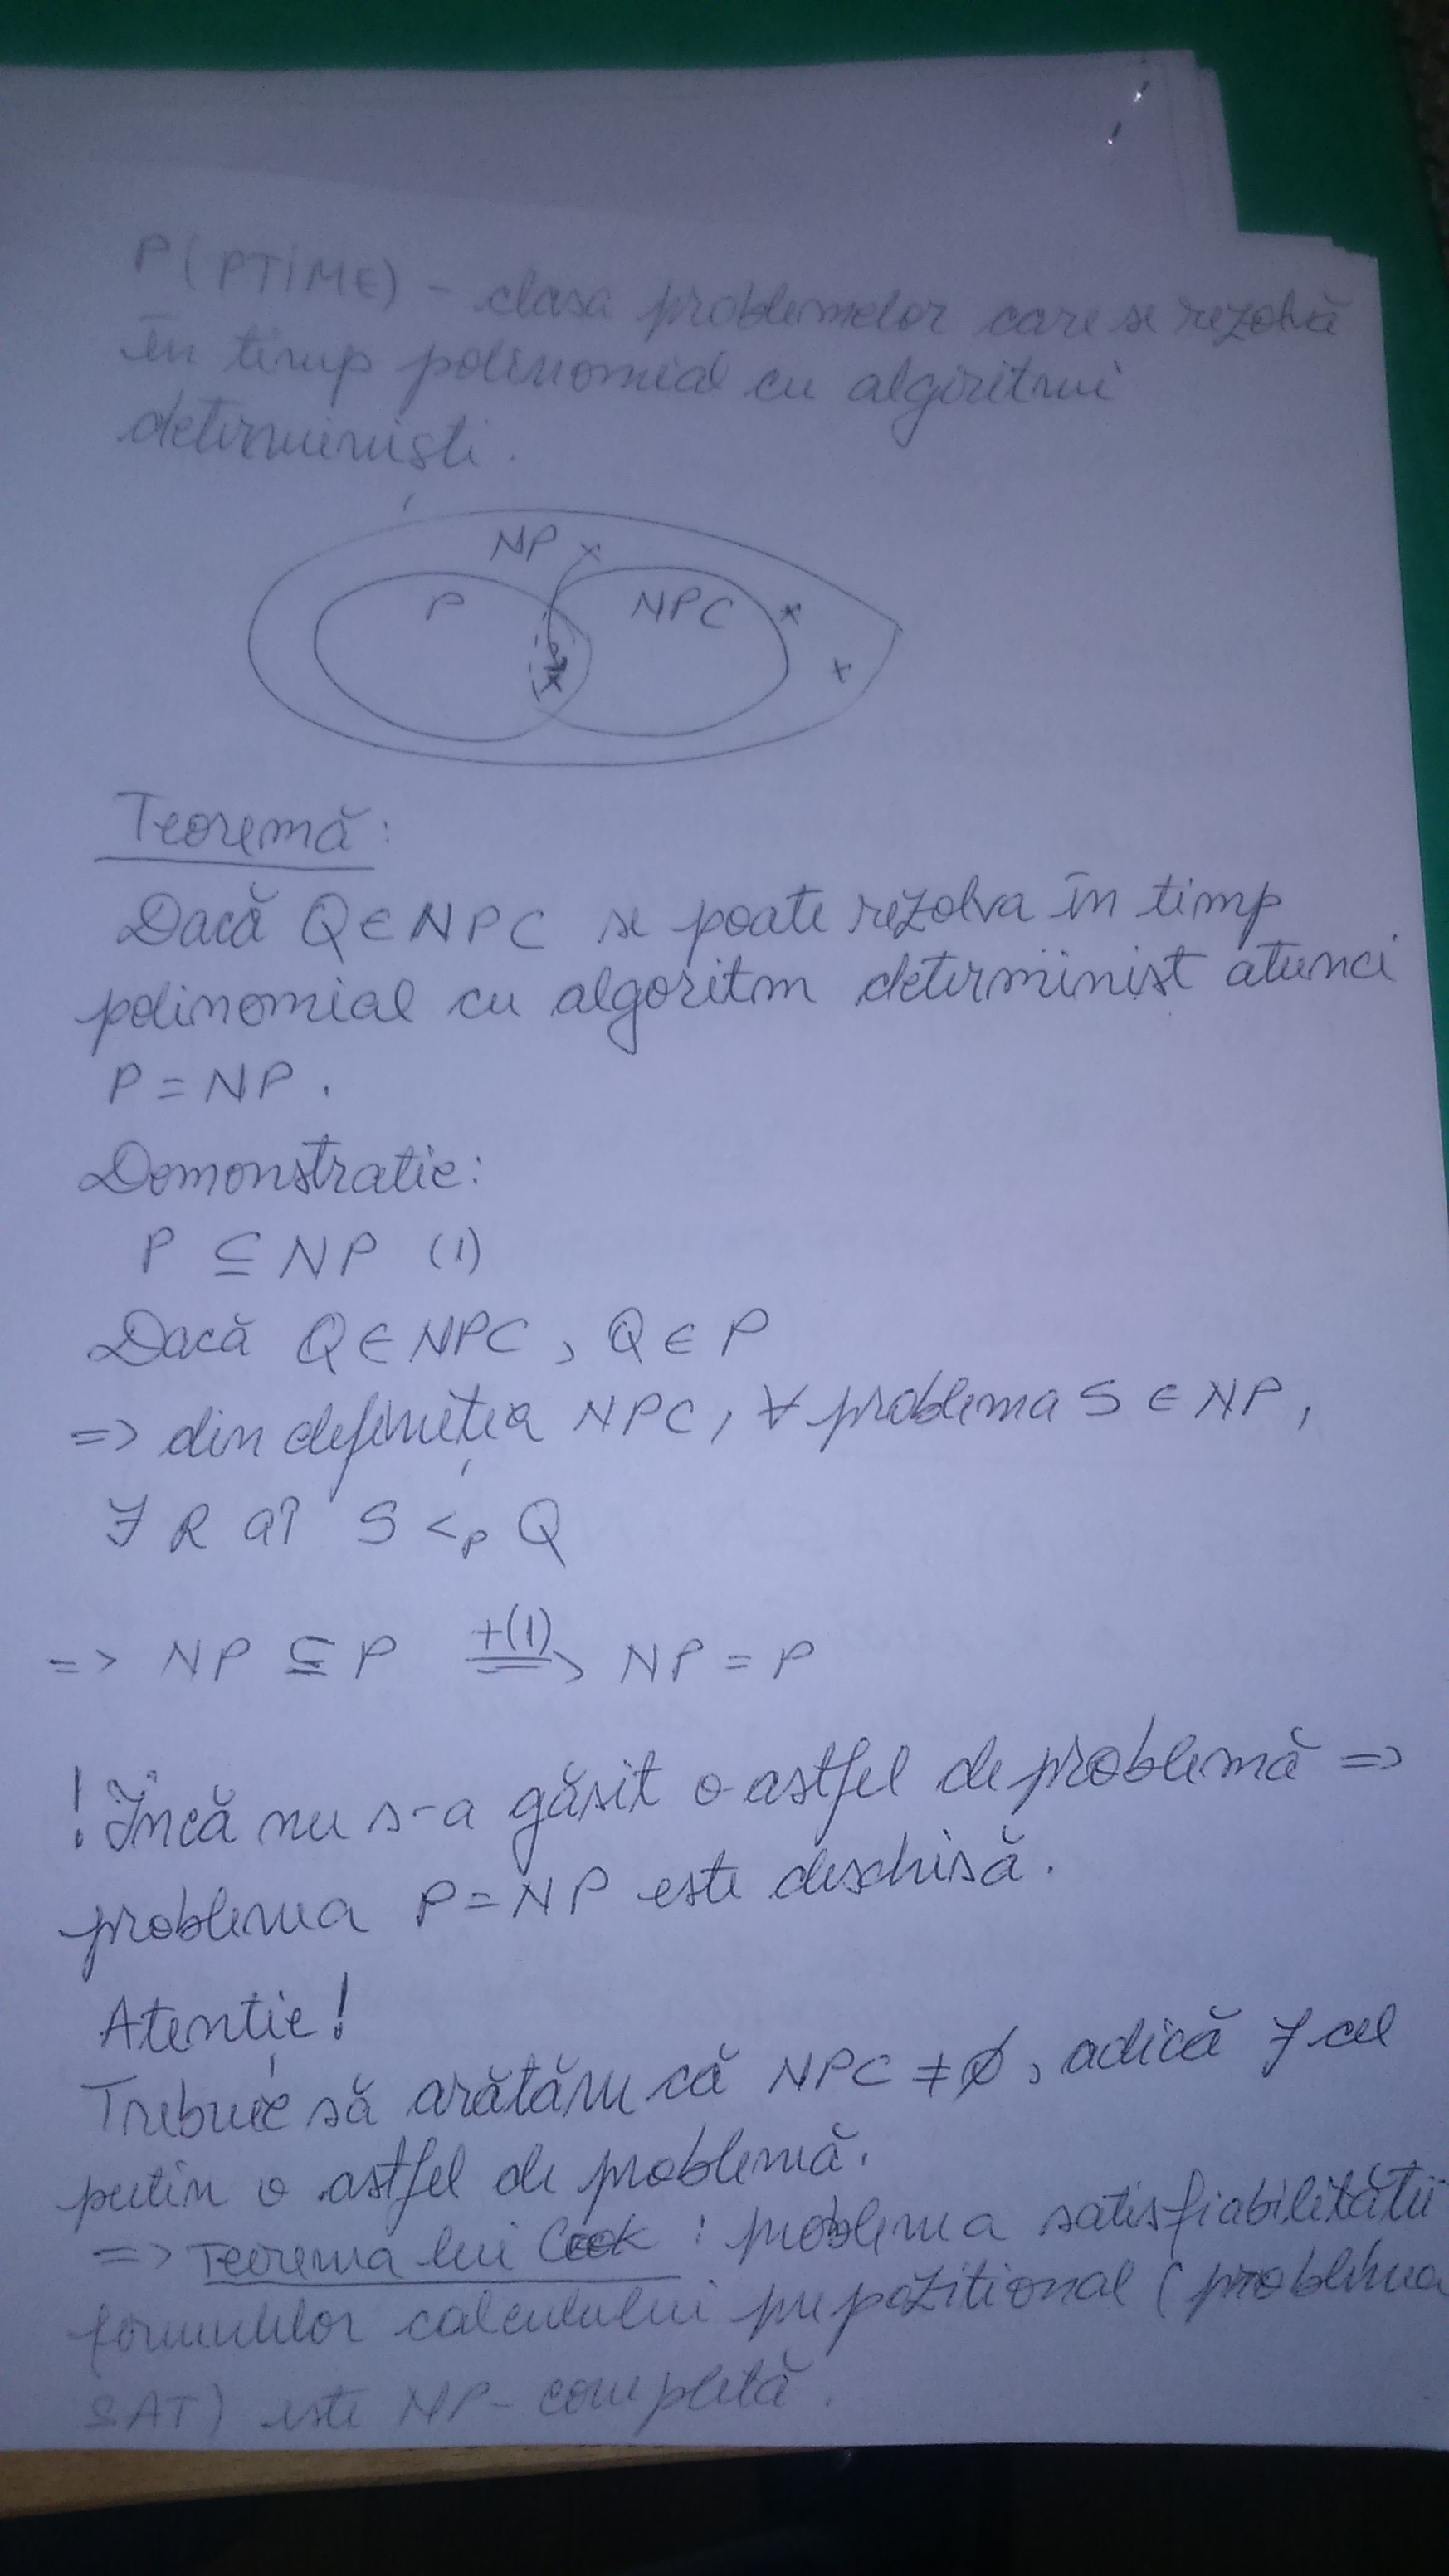 P(PTIME) - clasa problemelor care se rezolvă
în timp polinomial cu algoritmi
determiniști.
NP
P
NPC
Teoremă:
Dacă Q ∈ NPC se poate rezolva în timp
polinomial cu algoritm determinist atunci
P = NP.
Demonstratie:
P ⊆ NP (1)
Dacă Q ∈ NPC, Q ∈ P
=> din definiția NPC, ∀ problema S ∈ NP,
∃ R aî S <p Q
=> NP ⊆ P +(1) => NP = P
! Încă nu s-a găsit o astfel de problemă =>
problema P = NP este deschisă.
Atenție!
Trebuie să arătăm că NPC ≠ ∅, adică ∃ cel
putin o astfel de problemă.
=> Teorema lui Cook : problema satisfiabilitătii
formulelor calculului prepozitional (problema
SAT) este NP-completă.